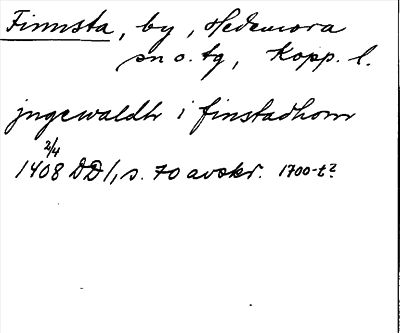 Finnsta, by, Hedemora
sn o. tg, Kopp. l.
jngewaldh i finstadhom
2/4
1408 DD 1, s. 70 avskr. 1700-t?